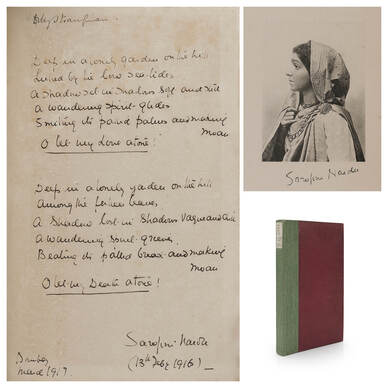 Deep in a lonely garden on the hill
Lulled by the low sea-tides
A Shadow set in Shadows soft and still
A wandering spirit glides
Smiting its pallid palms and making
Moan
O let my Love atone!
Deep in a lonely garden on the hill
Among the fallen leaves
A Shadow lost in Shadows Vague and
A wandering spirit grieves
Beating its pallid breast and making
Moan
O let my Death atone!
Sarojini Naidu
(18th Feby 1916)
1917
Sarojini Naidu